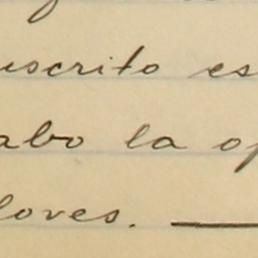 uscrito es
abo la op
loves. —